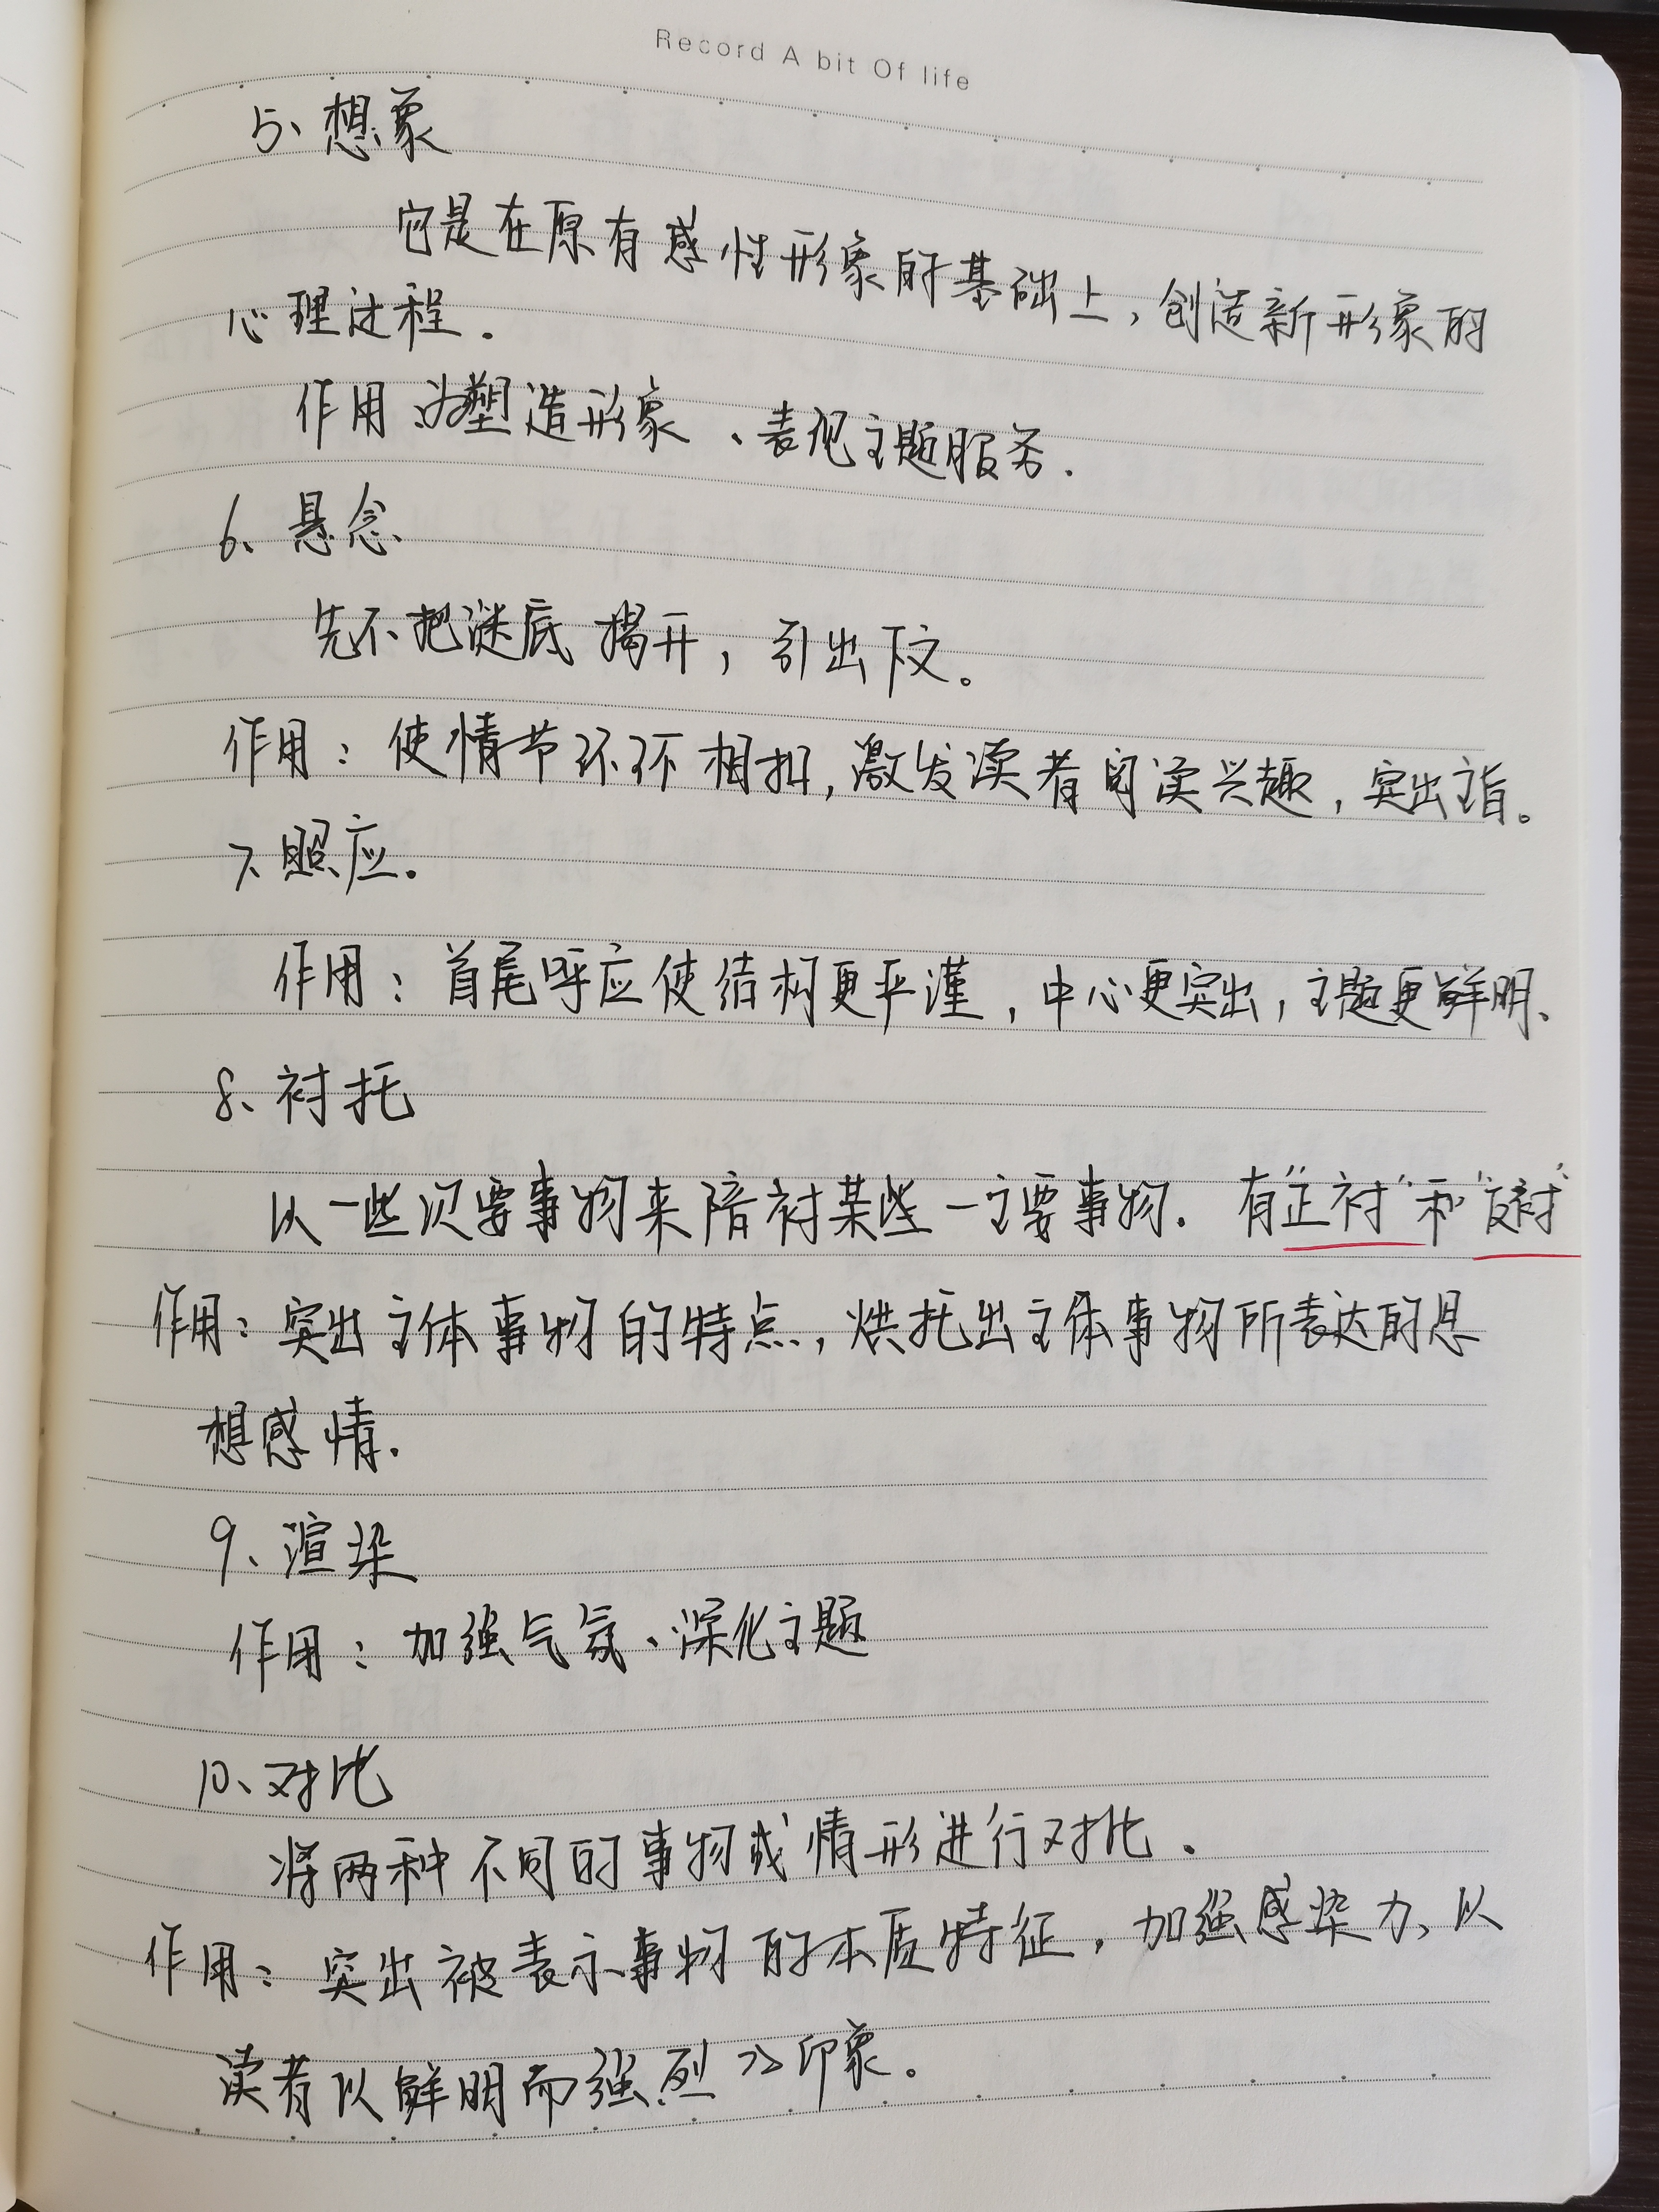 Record A bit Of life
5、想象
它是在原有感性形象的基础上,创造新形象的
心理过程.
作用:为塑造形象、表现主题服务.
6、悬念
先不把谜底揭开,引出下文。
作用:使情节环环相扣,激发读者阅读兴趣,突出主旨。
7、照应.
作用:首尾呼应使结构更严谨,中心更突出,主题更鲜明、
8、衬托
以一些次要事物来陪衬某些一主要事物.有"正衬"和"反衬"
作用:突出主体事物的特点,烘托出主体事物所表达的思
想感情.
9、渲染
作用:加强气氛、深化主题
10、对比
将两种不同的事物或情形进行对比.
作用:突出被表示事物的本质特征,加强感染力、以
读者以鲜明而强烈 印象。